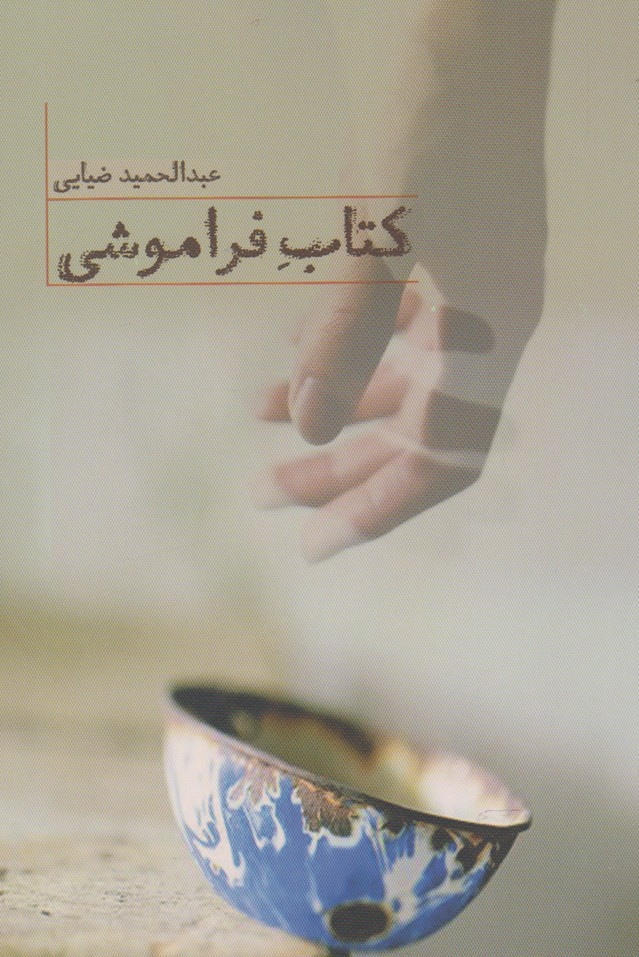 عبدالحمید ضیایی
کتابِ فراموشی